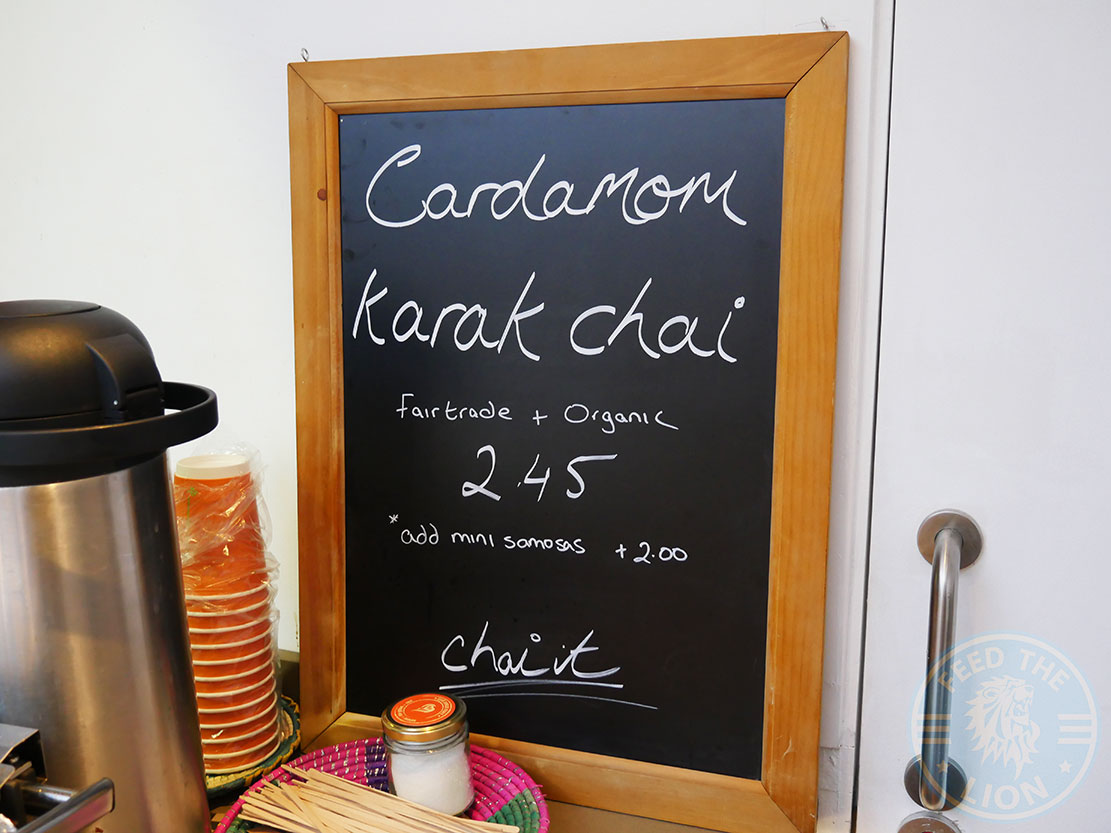 Cardamom
karak chai
fairtrade + Organic
2.45
*add mini samosas +2.00
chai it
FEED THE
LION